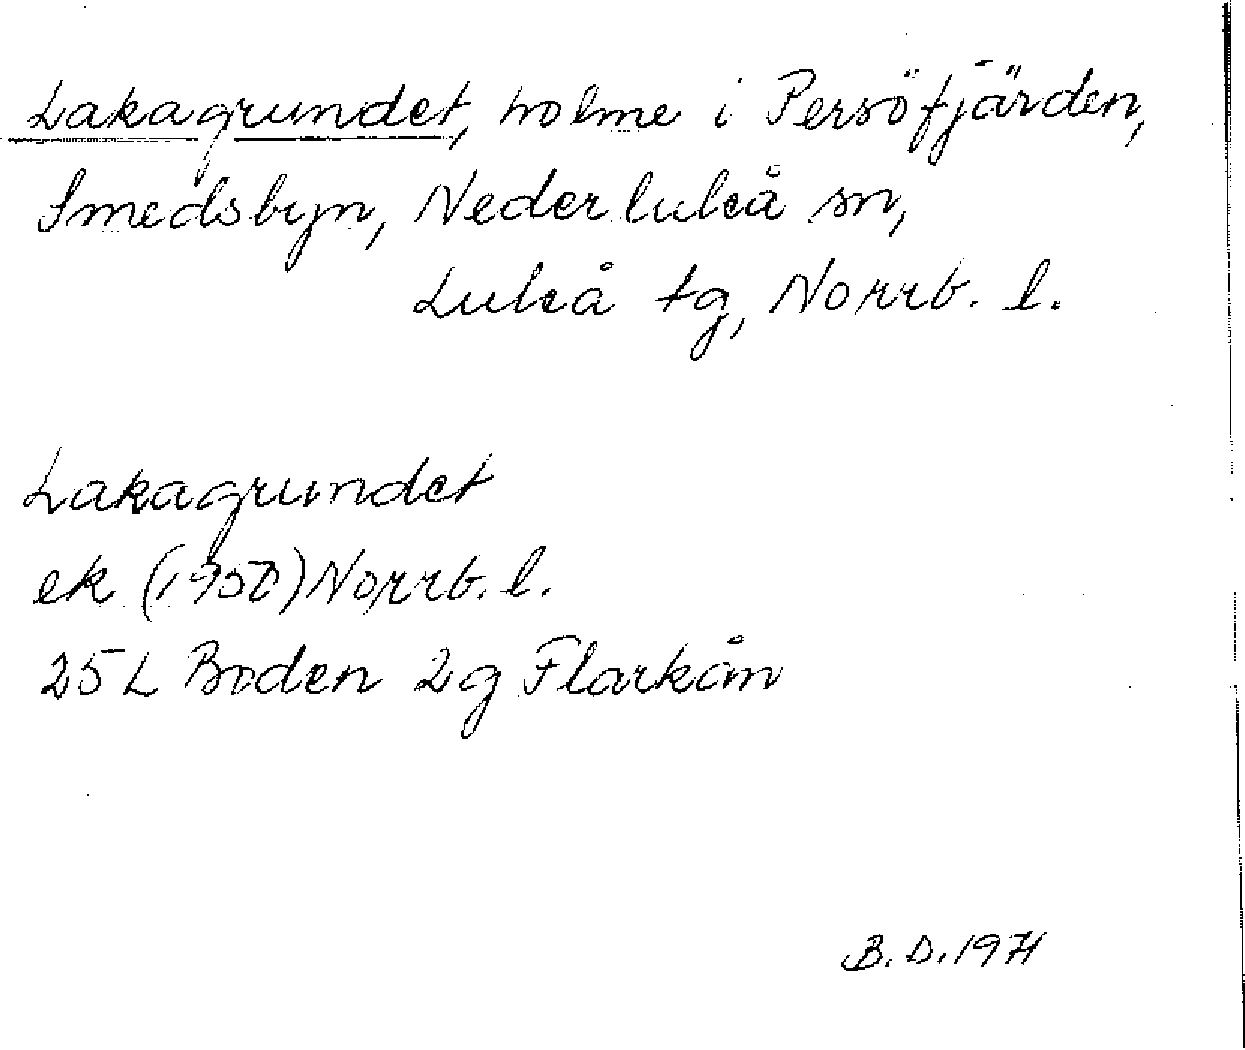 Lakagrundet, holme i Persöfjärden,
Smedsbyn, Nederluleå sn,
Luleå tg, Norrb. l.
Lakagrundet
ek (1950) Norrb. l.
25 L Boden 2g Flarkån
B. D. 1971